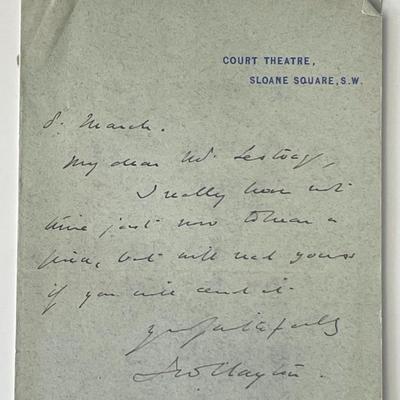 COURT THEATRE,
SLOANE SQUARE, S.W.
8. March.
My dear Mr.
I really have not
time just now to hear a
piece, but will read yours
if you will send it
yrs faithfully
Clayton.